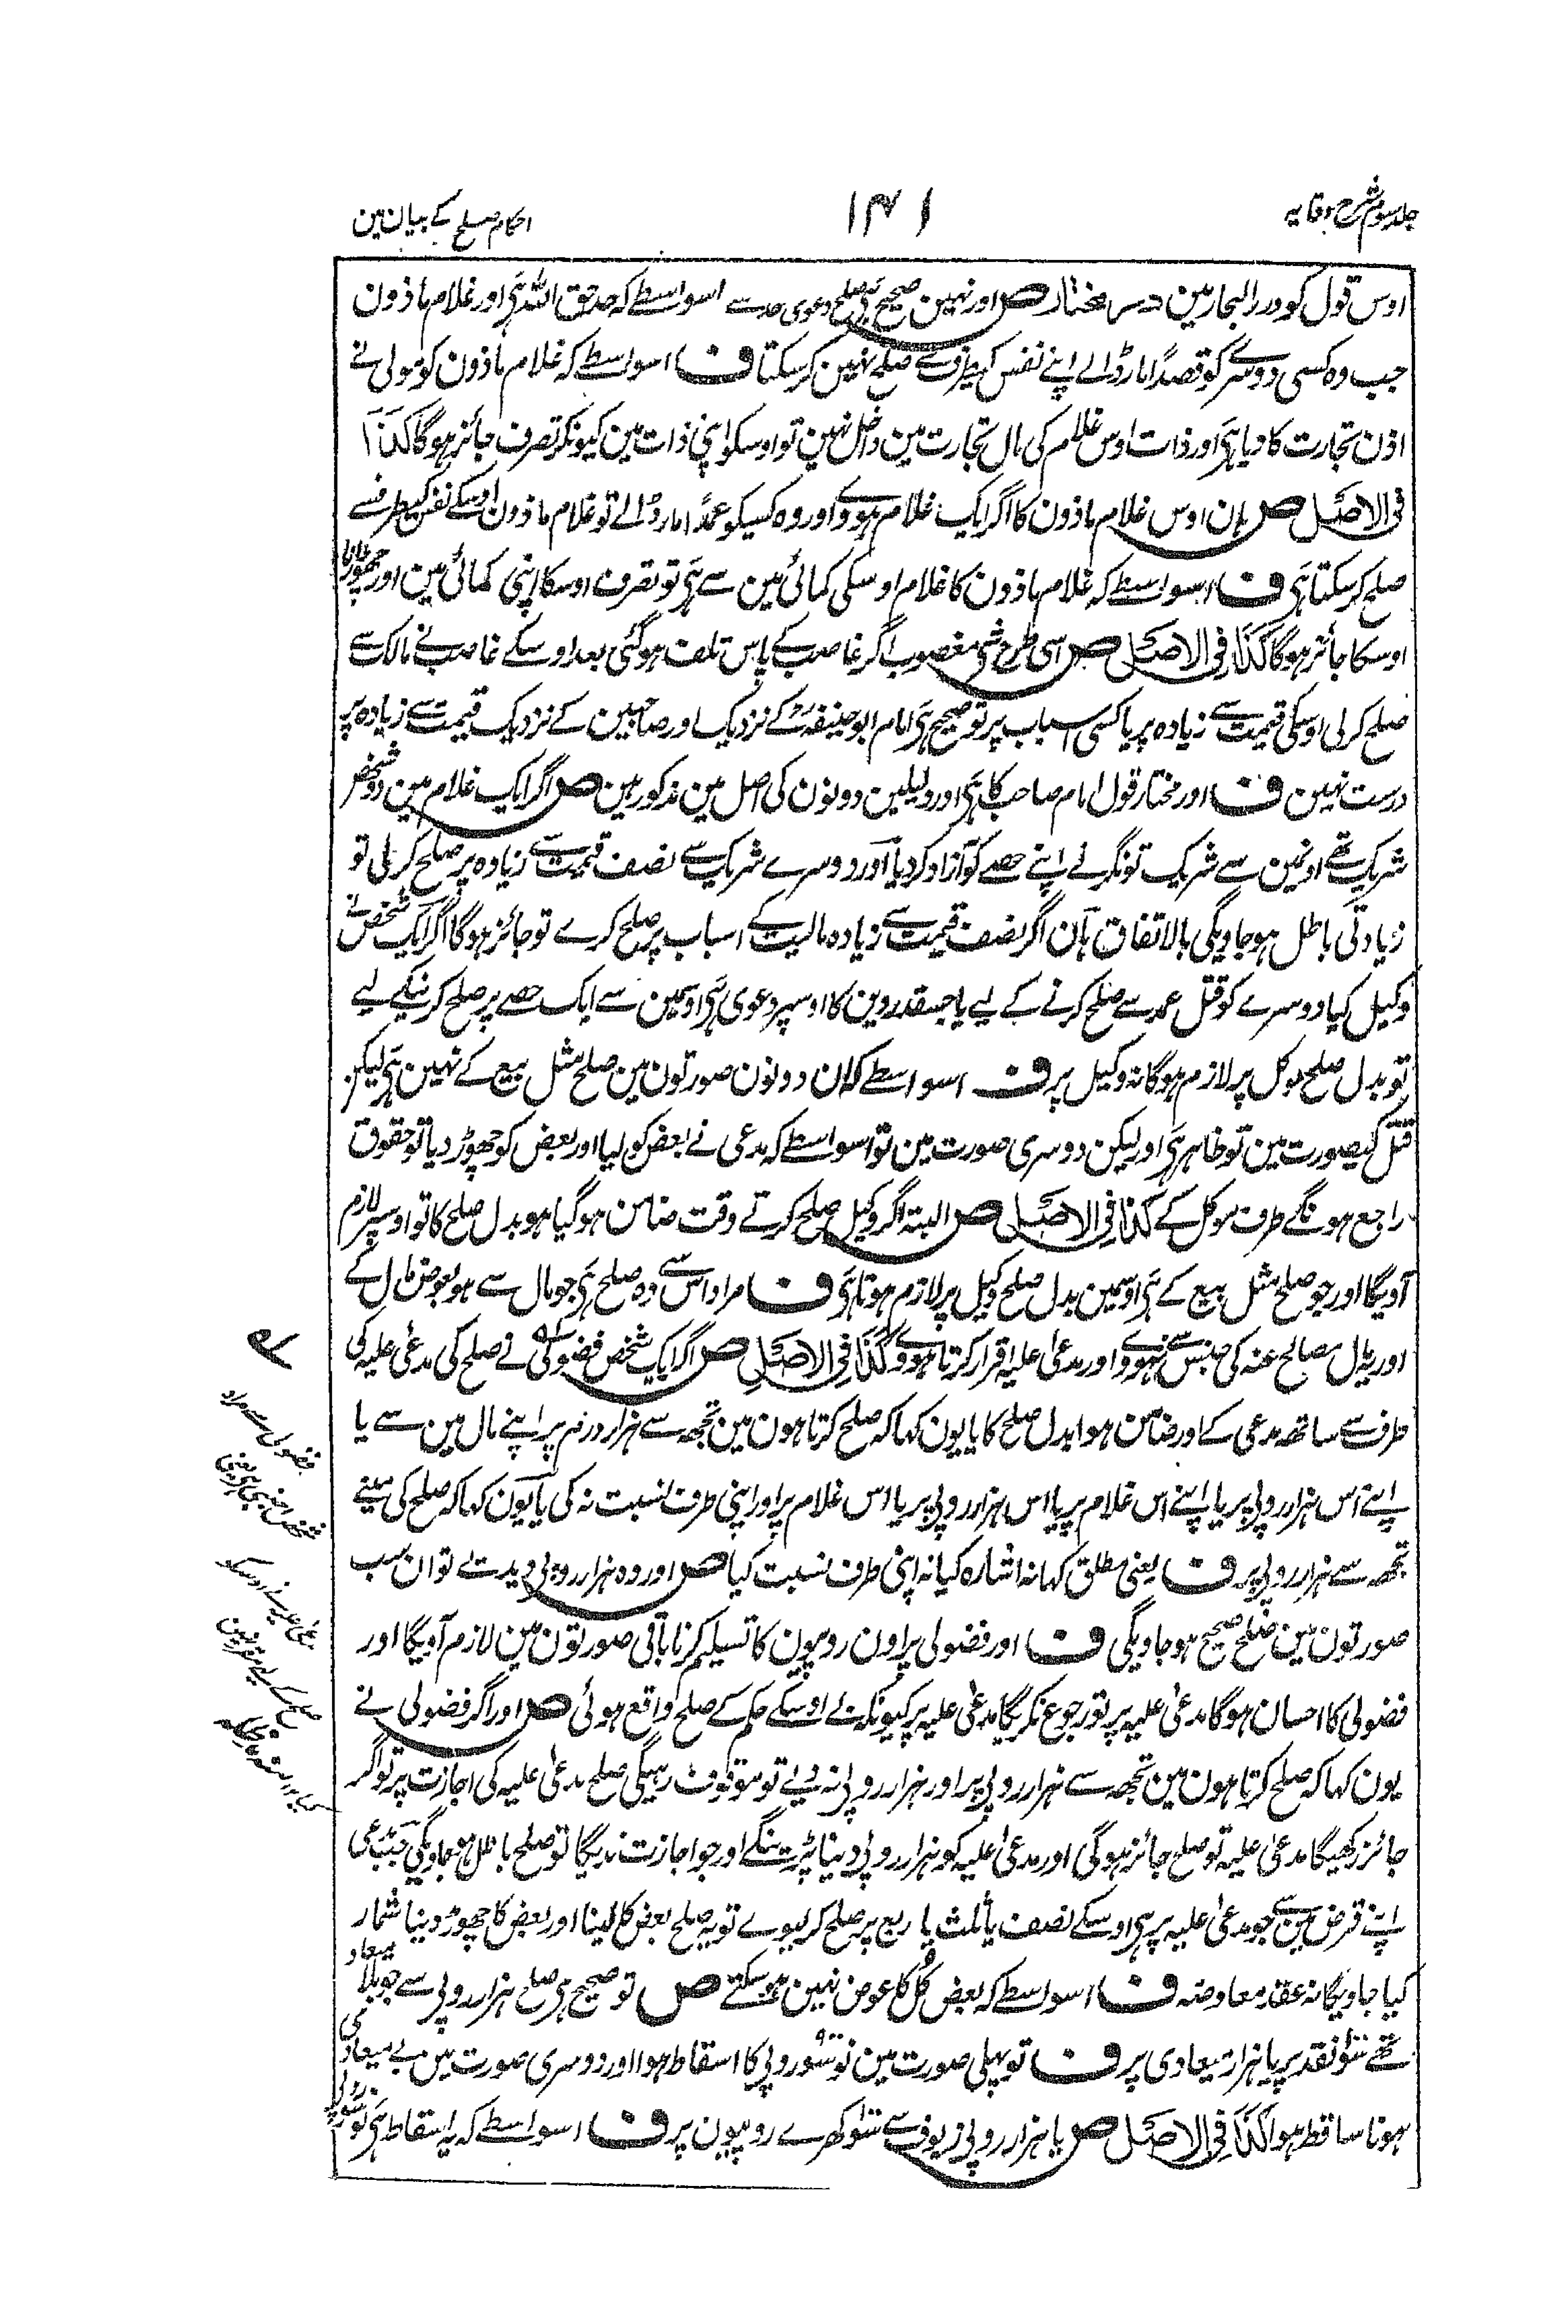 جلد سوم شرح وقایہ
۱۴۱
احکام صلح کے بیان مین
اوس قول کو درر البحار مین درمختار ص اور نہین صحیح ہی صلح دعوی حد سے اسواسطے کہ حد حق اللہ ہی اور غلام ماذون
جب وہ کسی دوسرے کو قصداً مار ڈالے اپنے نفس کیطرف سے صلح نہین کر سکتا ف اسواسطے کہ غلام ماذون کو مولی نے
اذن تجارت کا دیا ہی اور ذات اوس غلام کی مال تجارت مین داخل نہین تو اوسکو اپنی ذات مین کیونکر تصرف جائز ہوگا کذا
فی الاصل ص ہان اوس غلام ماذون کا اگر ایک غلام ہووے اور وہ کسیکو عمداً مار ڈالے تو غلام ماذون اوسکے نفس کیطرفسے
صلح کر سکتا ہی ف اسواسطے کہ غلام ماذون کا غلام اوسکی کمائی مین سے ہی تو تصرف اوسکا اپنی کمائی مین اور چھوڑانا
اوسکا جائز ہوگا کذا فی الاصل ص اسی طرح شی مغصوب اگر غاصب کے پاس تلف ہوگئی بعد اوسکے غاصب نے مالک سے
صلح کرلی اوسکی قیمت سے زیادہ پر یا کسی اسباب پر تو صحیح ہی امام ابوحنیفہ رح کے نزدیک اور صاحبین کے نزدیک قیمت سے زیادہ پر
درست نہین ف اور مختار قول امام صاحب کا ہی اور دلیلین دونون کی اصل مین مذکور ہین ص اگر ایک غلام مین دو شخص
شریک تھے اونمین سے شریک تونگر نے اپنے حصے کو آزاد کر دیا اور دوسرے شریک سے نصف قیمت سے زیادہ پر صلح کرلی تو
زیادتی باطل ہو جاویگی بالاتفاق ہان اگر نصف قیمت سے زیادہ مالیت کے اسباب پر صلح کرے تو جائز ہوگا اگر ایک شخص نے
وکیل کیا دوسرے کو قتل عمد سے صلح کرنے کے لیے یا جسقدر دین کا اوسپر دعوی ہی اوسمین سے ایک حصے پر صلح کرنیکے لیے
تو بدل صلح موکل پر لازم ہوگا نہ وکیل پر ف اسواسطے کہ ان دونون صورتون مین صلح مثل بیع کے نہین ہی لیکن
قتل کیصورت مین تو ظاہر ہی اور لیکن دوسری صورت مین تو اسواسطے کہ مدعی نے بعض کو لیا اور بعض کو چھوڑ دیا تو حقوق
راجع ہونگے طرف موکل کے کذا فی الاصل ص البتہ اگر وکیل صلح کرتے وقت ضامن ہوگیا ہو بدل صلح کا تو اوسپر لازم
آویگا اور جو صلح مثل بیع کے ہی اوسمین بدل صلح وکیل پر لازم ہوتا ہی ف مراد اس سے وہ صلح ہی جو مال سے ہو بعوض مال کے
اور یہ مال مصالح عنہ کی جنس سے نہووے اور مدعی علیہ اقرار کرتا ہووے کذا فی الاصل ص اگر ایک شخص فضولی نے صلح کی مدعی علیہ کی
طرف سے ساتھ مدعی کے اور ضامن ہوا بدل صلح کا یا یون کہا کہ صلح کرتا ہون مین تجھ سے ہزار درم پر اپنے مال مین سے یا
اپنے اس ہزار روپی پر یا اپنے اس غلام پر یا اس ہزار روپی پر یا اس غلام پر اور اپنی طرف نسبت نہ کی یا یون کہا کہ صلح کی مینے
تجھ سے ہزار روپی پر ف یعنی مطلق کہا نہ اشارہ کیا نہ اپنی طرف نسبت کیا ص اور وہ ہزار روپی دیدیے تو ان سب
صورتون مین صلح صحیح ہو جاویگی ف اور فضولی پر اون روپیون کا تسلیم کرنا باقی صورتون مین لازم آویگا اور
فضولی کا احسان ہوگا مدعی علیہ پر تو رجوع نکریگا مدعی علیہ پر کیونکہ بے اوسکے حکم کے صلح واقع ہوئی ص اور اگر فضولی نے
یون کہا کہ صلح کرتا ہون مین تجھ سے ہزار روپی پر اور ہزار روپی نہ دیے تو موقوف رہیگی صلح مدعی علیہ کی اجازت پر تو اگر
جائز رکھیگا مدعی علیہ تو صلح جائز ہوگی اور مدعی علیہ کو ہزار روپی دینا پڑینگے اور جو اجازت ندیگا تو صلح باطل ہو جاویگی جب مدعی
اپنے قرض مین سے جو مدعی علیہ پر ہی اوسکے نصف یا ثلث یا ربع پر صلح کر لیوے تو یہ صلح بعض کا لینا اور بعض کا چھوڑ دینا شمار
کیا جاویگا نہ عقد معاوضہ ف اسواسطے کہ بعض کل کا عوض نہین ہو سکتے ص تو صحیح ہی صلح ہزار روپی سے جو بلا میعاد
تھے سو نقد پر یا ہزار میعادی پر ف تو پہلی صورت مین نو سو روپی کا اسقاط ہوا اور دوسری صورت مین بے میعادی
ہونا ساقط ہوا کذا فی الاصل ص یا ہزار روپی زیوف سے سو کھرے روپیون پر ف اسواسطے کہ یہ اسقاط ہی نو سو روپی
فضولی سے مراد
شخص اجنبی ہی یعنی
مدعی علیہ نے اوسکو
صلح کے لیے مقرر نہین